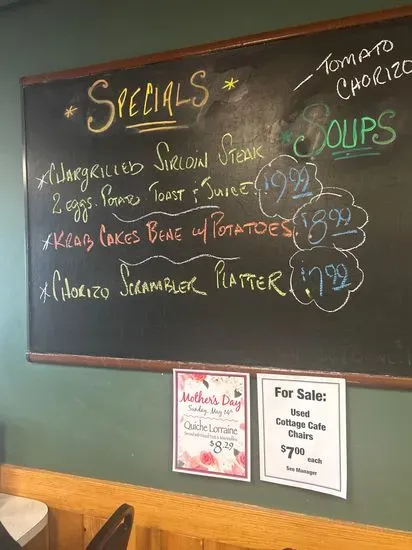 * SPECIALS *
*CHARGRILLED SIRLOIN STEAK
2 eggs. POTATO TOAST & JUICE $9.99
*KRAB CAKES BENE w/ POTATOES $8.99
*CHORIZO SCRAMBLER PLATTER $7.99
- TOMATO
CHORIZO
* SOUPS
Mother's Day
Sunday, May 14th
Quiche Lorraine
$8.29
For Sale:
Used
Cottage Cafe
Chairs
$7.00 each
See Manager